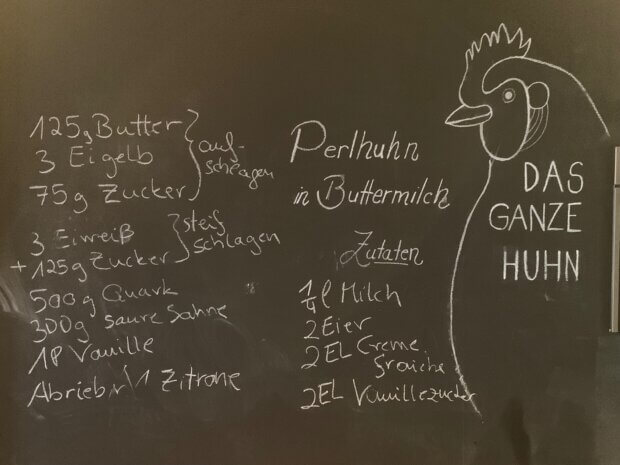 125g Butter
3 Eigelb
75g Zucker
auf-
schlagen
3 Eiweiß
+ 125g Zucker
steif
schlagen
500g Quark
300g saure Sahne
1P Vanille
Abrieb 1 Zitrone
Perlhuhn
in Buttermilch
Zutaten
1/4 l Milch
2 Eier
2 EL Creme
fraiche
2EL Vanillezucker
DAS
GANZE
HUHN